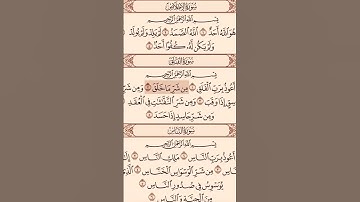 سُورَةُ الإِخْلَاصِ
بِسْمِ اللَّهِ الرَّحْمَٰنِ الرَّحِيمِ
هُوَ اللَّهُ أَحَدٌ ۝ اللَّهُ الصَّمَدُ ۝ لَمْ يَلِدْ وَلَمْ يُولَدْ
وَلَمْ يَكُن لَّهُ كُفُوًا أَحَدٌ
سُورَةُ الفَلَقِ
بِسْمِ اللَّهِ الرَّحْمَٰنِ الرَّحِيمِ
أَعُوذُ بِرَبِّ الْفَلَقِ ۝ مِن شَرِّ مَا خَلَقَ ۝ وَمِن شَرِّ
إِذَا وَقَبَ ۝ وَمِن شَرِّ النَّفَّاثَاتِ فِي الْعُقَدِ
وَمِن شَرِّ حَاسِدٍ إِذَا حَسَدَ
سُورَةُ النَّاسِ
بِسْمِ اللَّهِ الرَّحْمَٰنِ الرَّحِيمِ
أَعُوذُ بِرَبِّ النَّاسِ ۝ مَلِكِ النَّاسِ
مِن شَرِّ الْوَسْوَاسِ الْخَنَّاسِ
يُوَسْوِسُ فِي صُدُورِ النَّاسِ
مِنَ الْجِنَّةِ وَالنَّاسِ